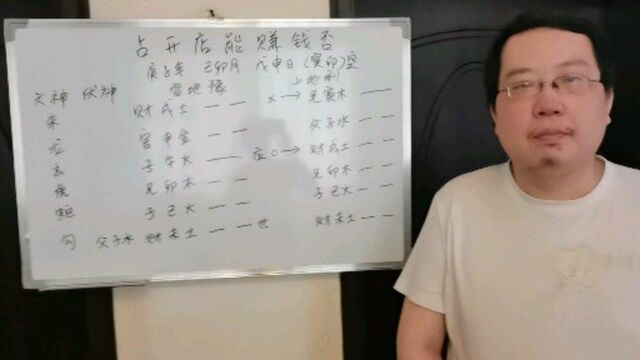 占开店能赚钱否
庚子年 己卯月 戊申日(寅卯)空
雷地豫 火地晋
六神 伏神 财戌土 x→ 兄寅木
朱 官申金 父子水
龙 子午火 应 o→ 财戌土
玄 兄卯木 兄卯木
虎 子巳火 子巳火
蛇 财未土 世 财未土
勾 父子水